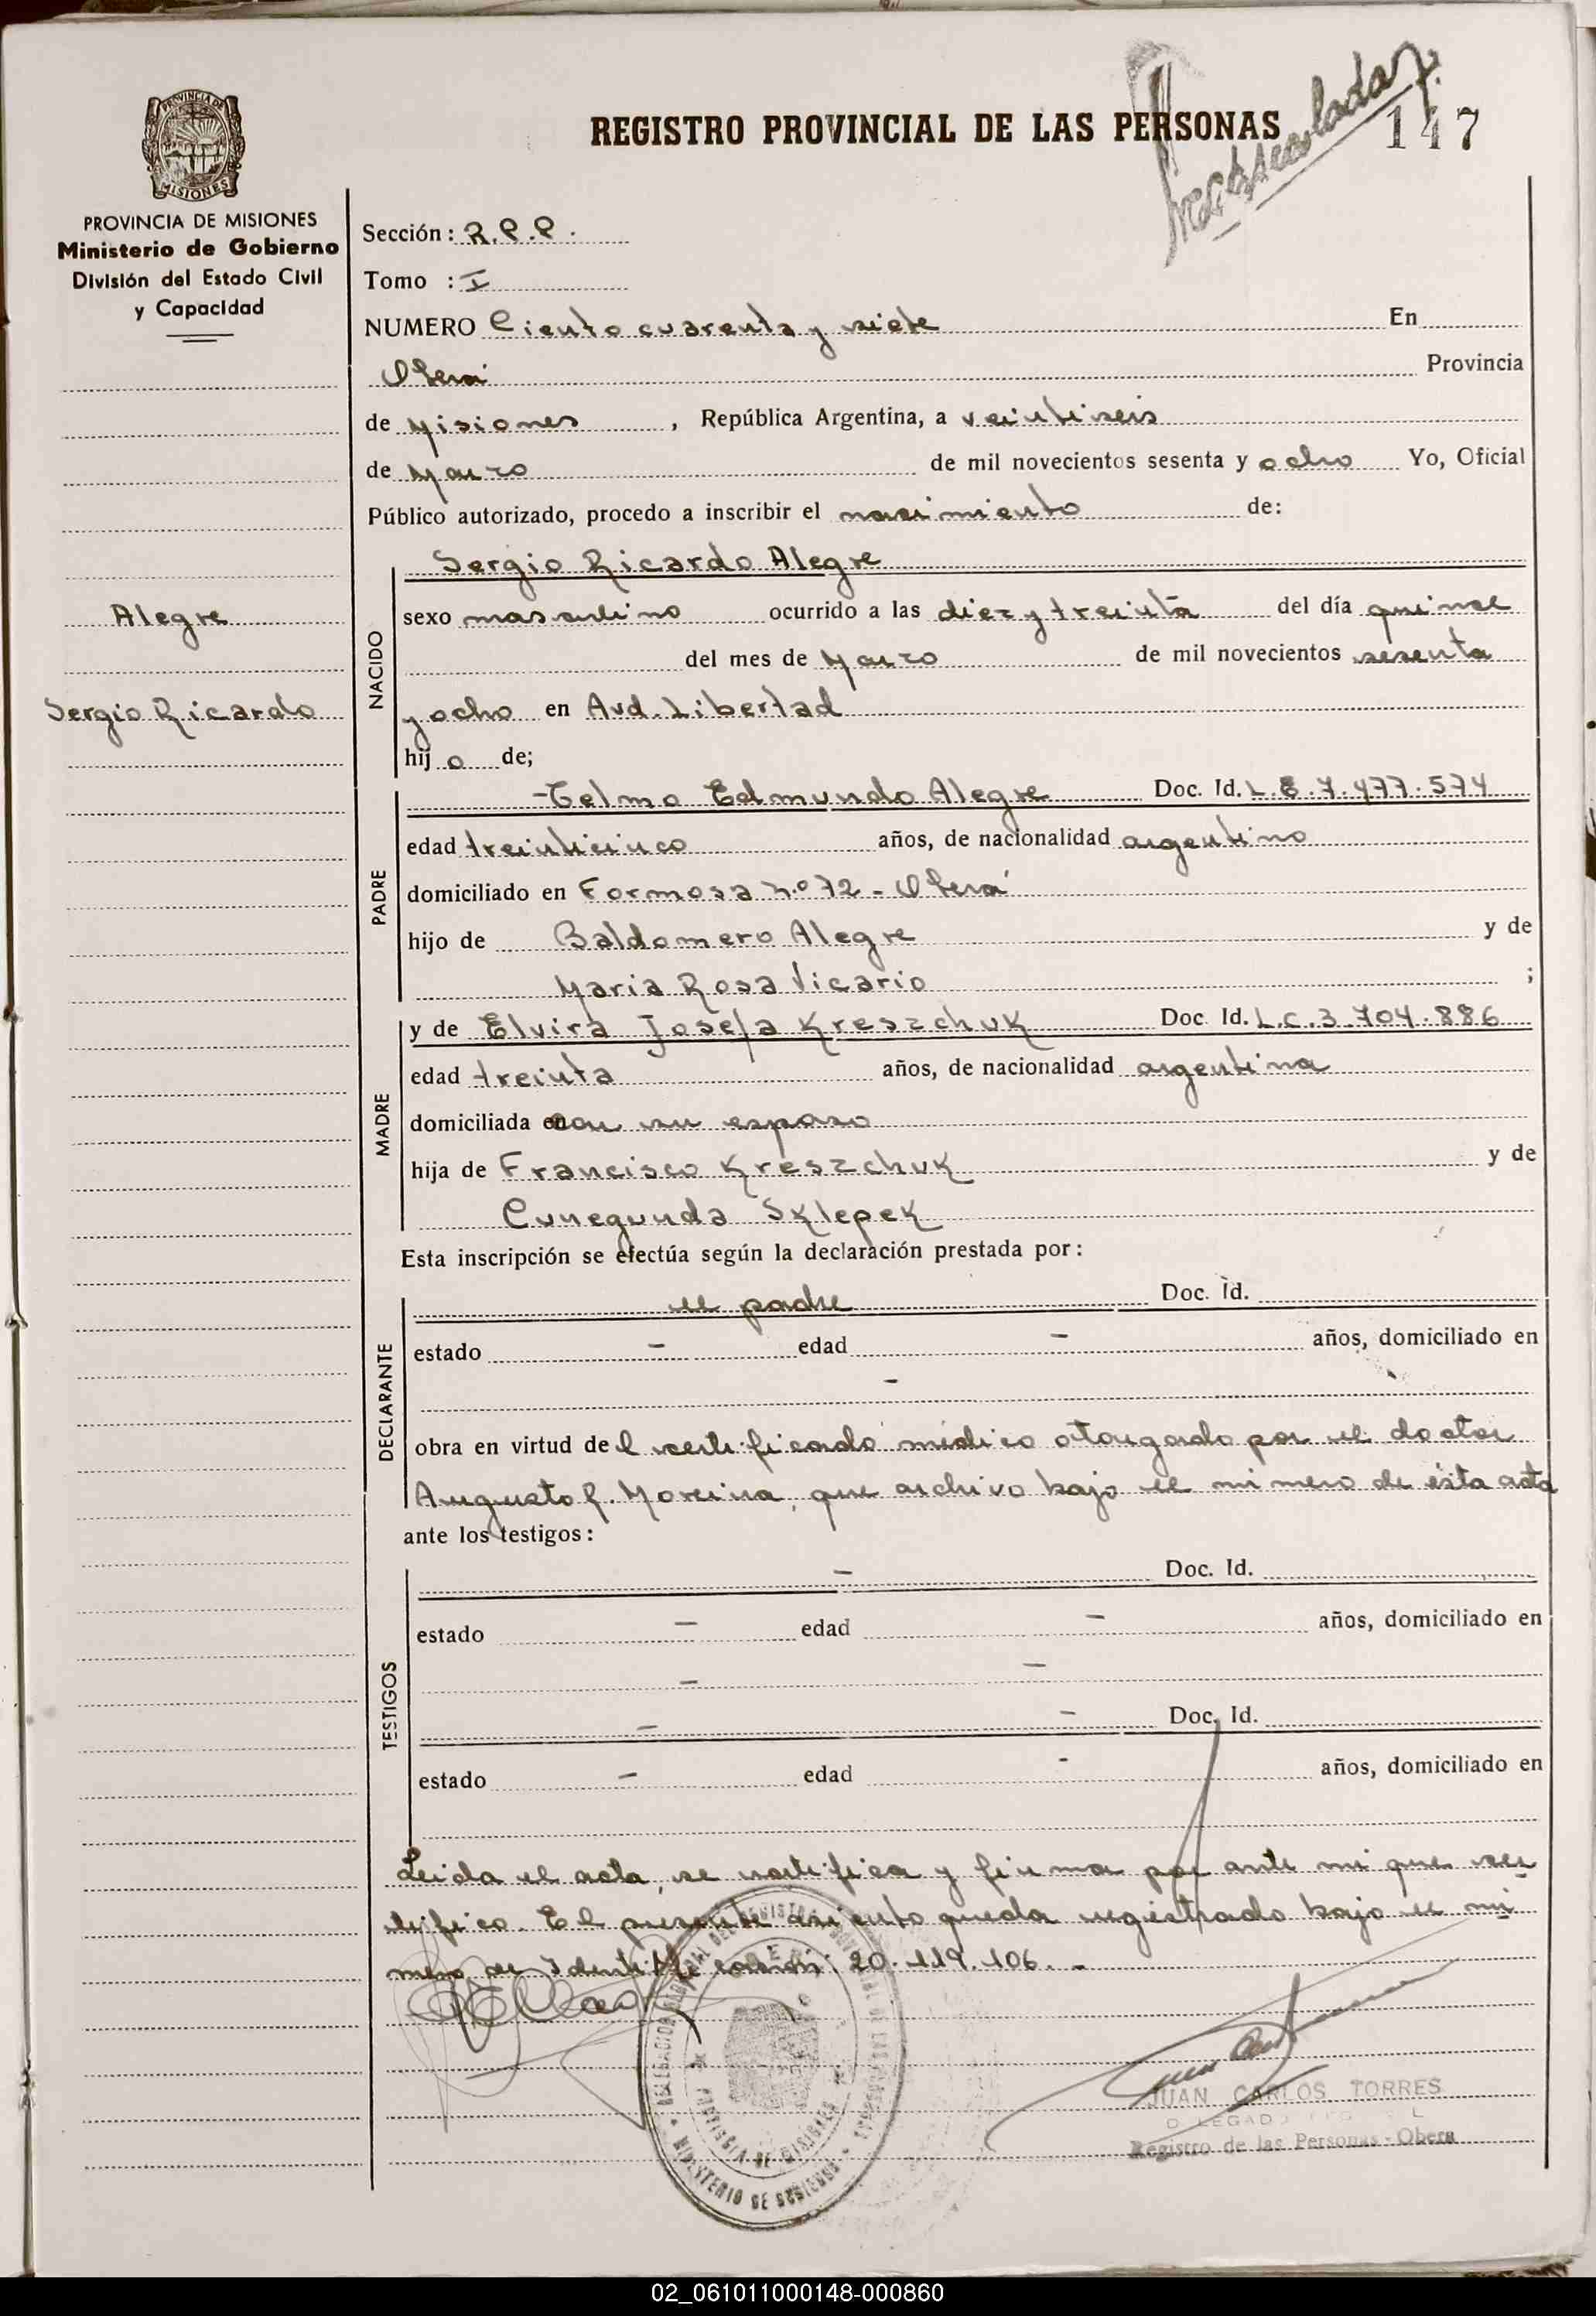 REGISTRO PROVINCIAL DE LAS PERSONAS
147
PROVINCIA DE MISIONES
PROVINCIA DE MISIONES
Ministerio de Gobierno
División del Estado Civil
y Capacidad
Sección: R.P.P.
Tomo : I
NUMERO Ciento cuarenta y siete En
Oberá Provincia
de Misiones, República Argentina, a veintiseis
de Marzo de mil novecientos sesenta y ocho Yo, Oficial
Público autorizado, procedo a inscribir el nacimiento de:
Alegre
Sergio Ricardo
NACIDO
Sergio Ricardo Alegre
sexo masculino ocurrido a las diez y treinta del día quince
del mes de Marzo de mil novecientos sesenta
y ocho en Avd. Libertad
hijo de;
PADRE
Telmo Edmundo Alegre Doc. Id. L.E. 7.477.574
edad treinticinco años, de nacionalidad argentino
domiciliado en Formosa N.º 72 - Oberá
hijo de Baldomero Alegre y de
Maria Rosa Vicario ;
MADRE
y de Elvira Josefa Kreszchuk Doc. Id. L.C. 3.704.886
edad treinta años, de nacionalidad argentina
domiciliada en con su esposo
hija de Francisco Kreszchuk y de
Cunegunda Sklepek
Esta inscripción se efectúa según la declaración prestada por:
DECLARANTE
el padre Doc. Id.
estado - edad - años, domiciliado en
-
obra en virtud del certificado médico otorgado por el doctor
Augusto R. Moreira, que archivo bajo el número de ésta acta
ante los testigos:
TESTIGOS
- Doc. Id.
estado - edad - años, domiciliado en
- -
- - Doc. Id.
estado - edad - años, domiciliado en
Leida el acta, se ratifica y firma por ante mi que cer
tifico. El presente asiento queda registrado bajo el nú
mero de Identificación: 20.119.106. -
JUAN CARLOS TORRES
Registro de las Personas - Obera
MINISTERIO DE GOBIERNO
PROVINCIA DE MISIONES
02_061011000148-000860